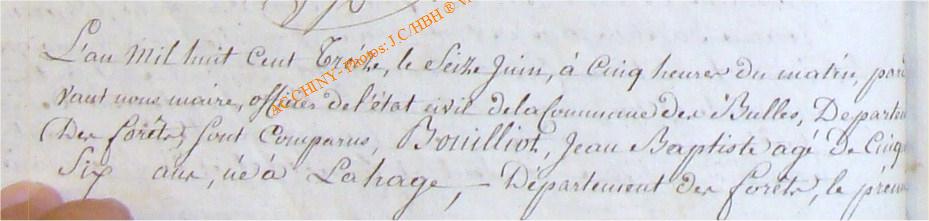 L'an mil huit cent Treize, le Seize Juin, à Cinq heures du matin, par
devant nous maire, officier de l'état civil de la Commune des Bulles, Departem
(Des forêts) sont Comparus, Bouilliot, Jean Baptiste agé de Cinq
Six ans, né à Lahage, - Département des forêts, le prem
AG CHINY - Photos: J.C/HBH ®